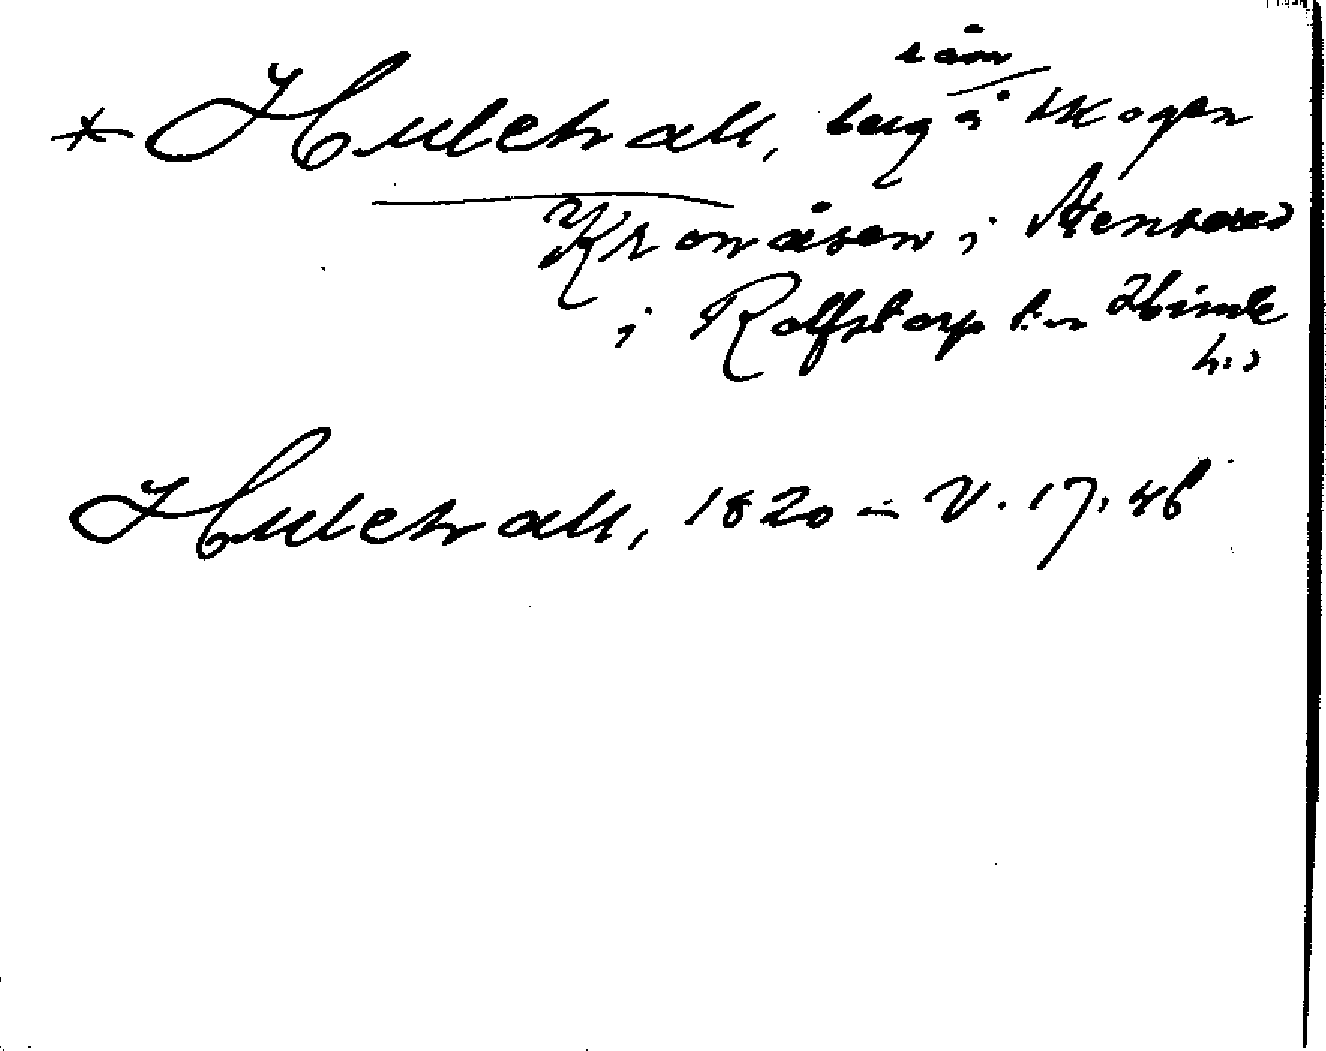 * Hulehall, berg i skogen
Kronåsen i Stenared
i Rolfstorp sn Himle
h:d
Hulehall, 1820 – V. 17. 46